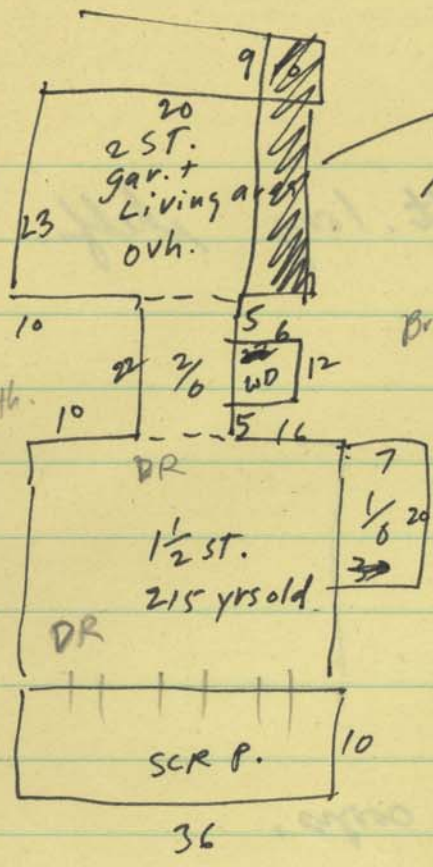 9
20
2 ST.
gar. +
Living area
ovh.
23
10
5
6
22
2/0
WD
12
Br
th.
10
5
16
DR
7
1/0
20
1½ ST.
215 yrs old
DR
SCR P.
10
36